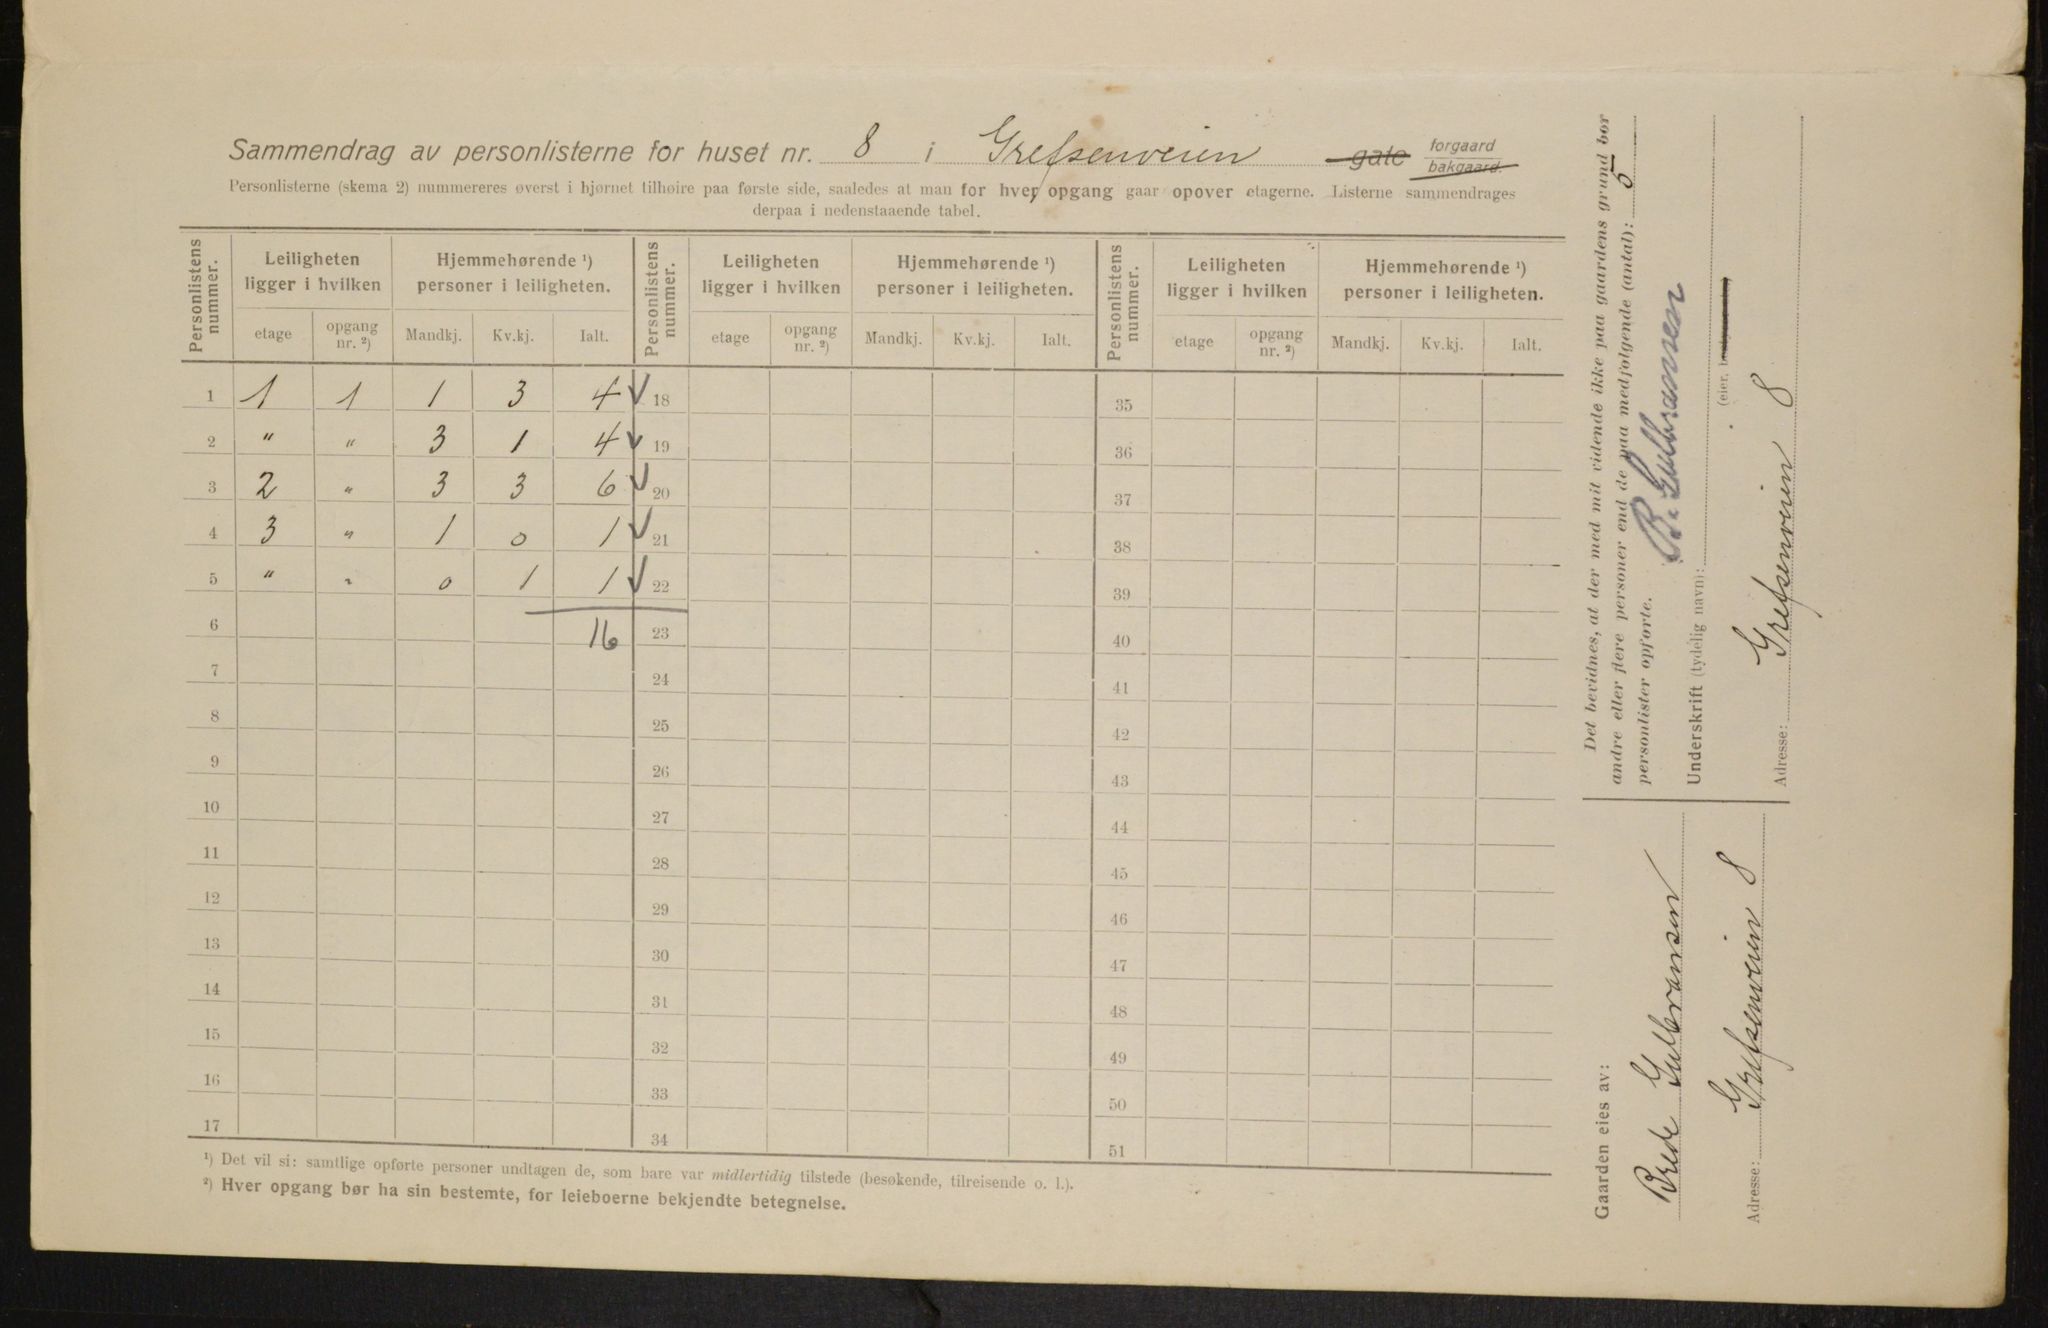 Sammendrag av personlisterne for huset nr. 8 i Grefsenveien gate forgaard bakgaard.
Personlisterne (skema 2) nummereres øverst i hjørnet tilhøire paa første side, saaledes at man for hver opgang gaar opover etagerne. Listerne sammendrages
derpaa i nedenstaaende tabel.
Personlistens nummer. Leiligheten ligger i hvilken Hjemmehørende ¹) personer i leiligheten. Personlistens nummer. Leiligheten ligger i hvilken Hjemmehørende ¹) personer i leiligheten. Personlistens nummer. Leiligheten ligger i hvilken Hjemmehørende ¹) personer i leiligheten.
etage opgang nr. ²) Mandkj. Kv.kj. Ialt. etage opgang nr. ²) Mandkj. Kv.kj. Ialt. etage opgang nr. ²) Mandkj. Kv.kj. Ialt.
1 1 1 1 3 4 18 35
2 " " 3 1 4 19 36
3 2 " 3 3 6 20 37
4 3 " 1 0 1 21 38
5 " " 0 1 1 22 39
6 16 23 40
7 24 41
8 25 42
9 26 43
10 27 44
11 28 45
12 29 46
13 30 47
14 31 48
15 32 49
16 33 50
17 34 51
¹) Det vil si: samtlige opførte personer undtagen de, som bare var midlertidig tilstede (besøkende, tilreisende o. l.).
²) Hver opgang bør ha sin bestemte, for leieboerne bekjendte betegnelse.
Det bevidnes, at der med mit vidende ikke paa gaardens grund bor
andre eller flere personer end de paa medfølgende (antal): 5
personlister opførte.
Underskrift (tydelig navn): B. Gulbransen
(eier,
Adresse: Grefsenveien 8
Gaarden eies av:
Brede Gulbransen
Adresse: Grefsenveien 8